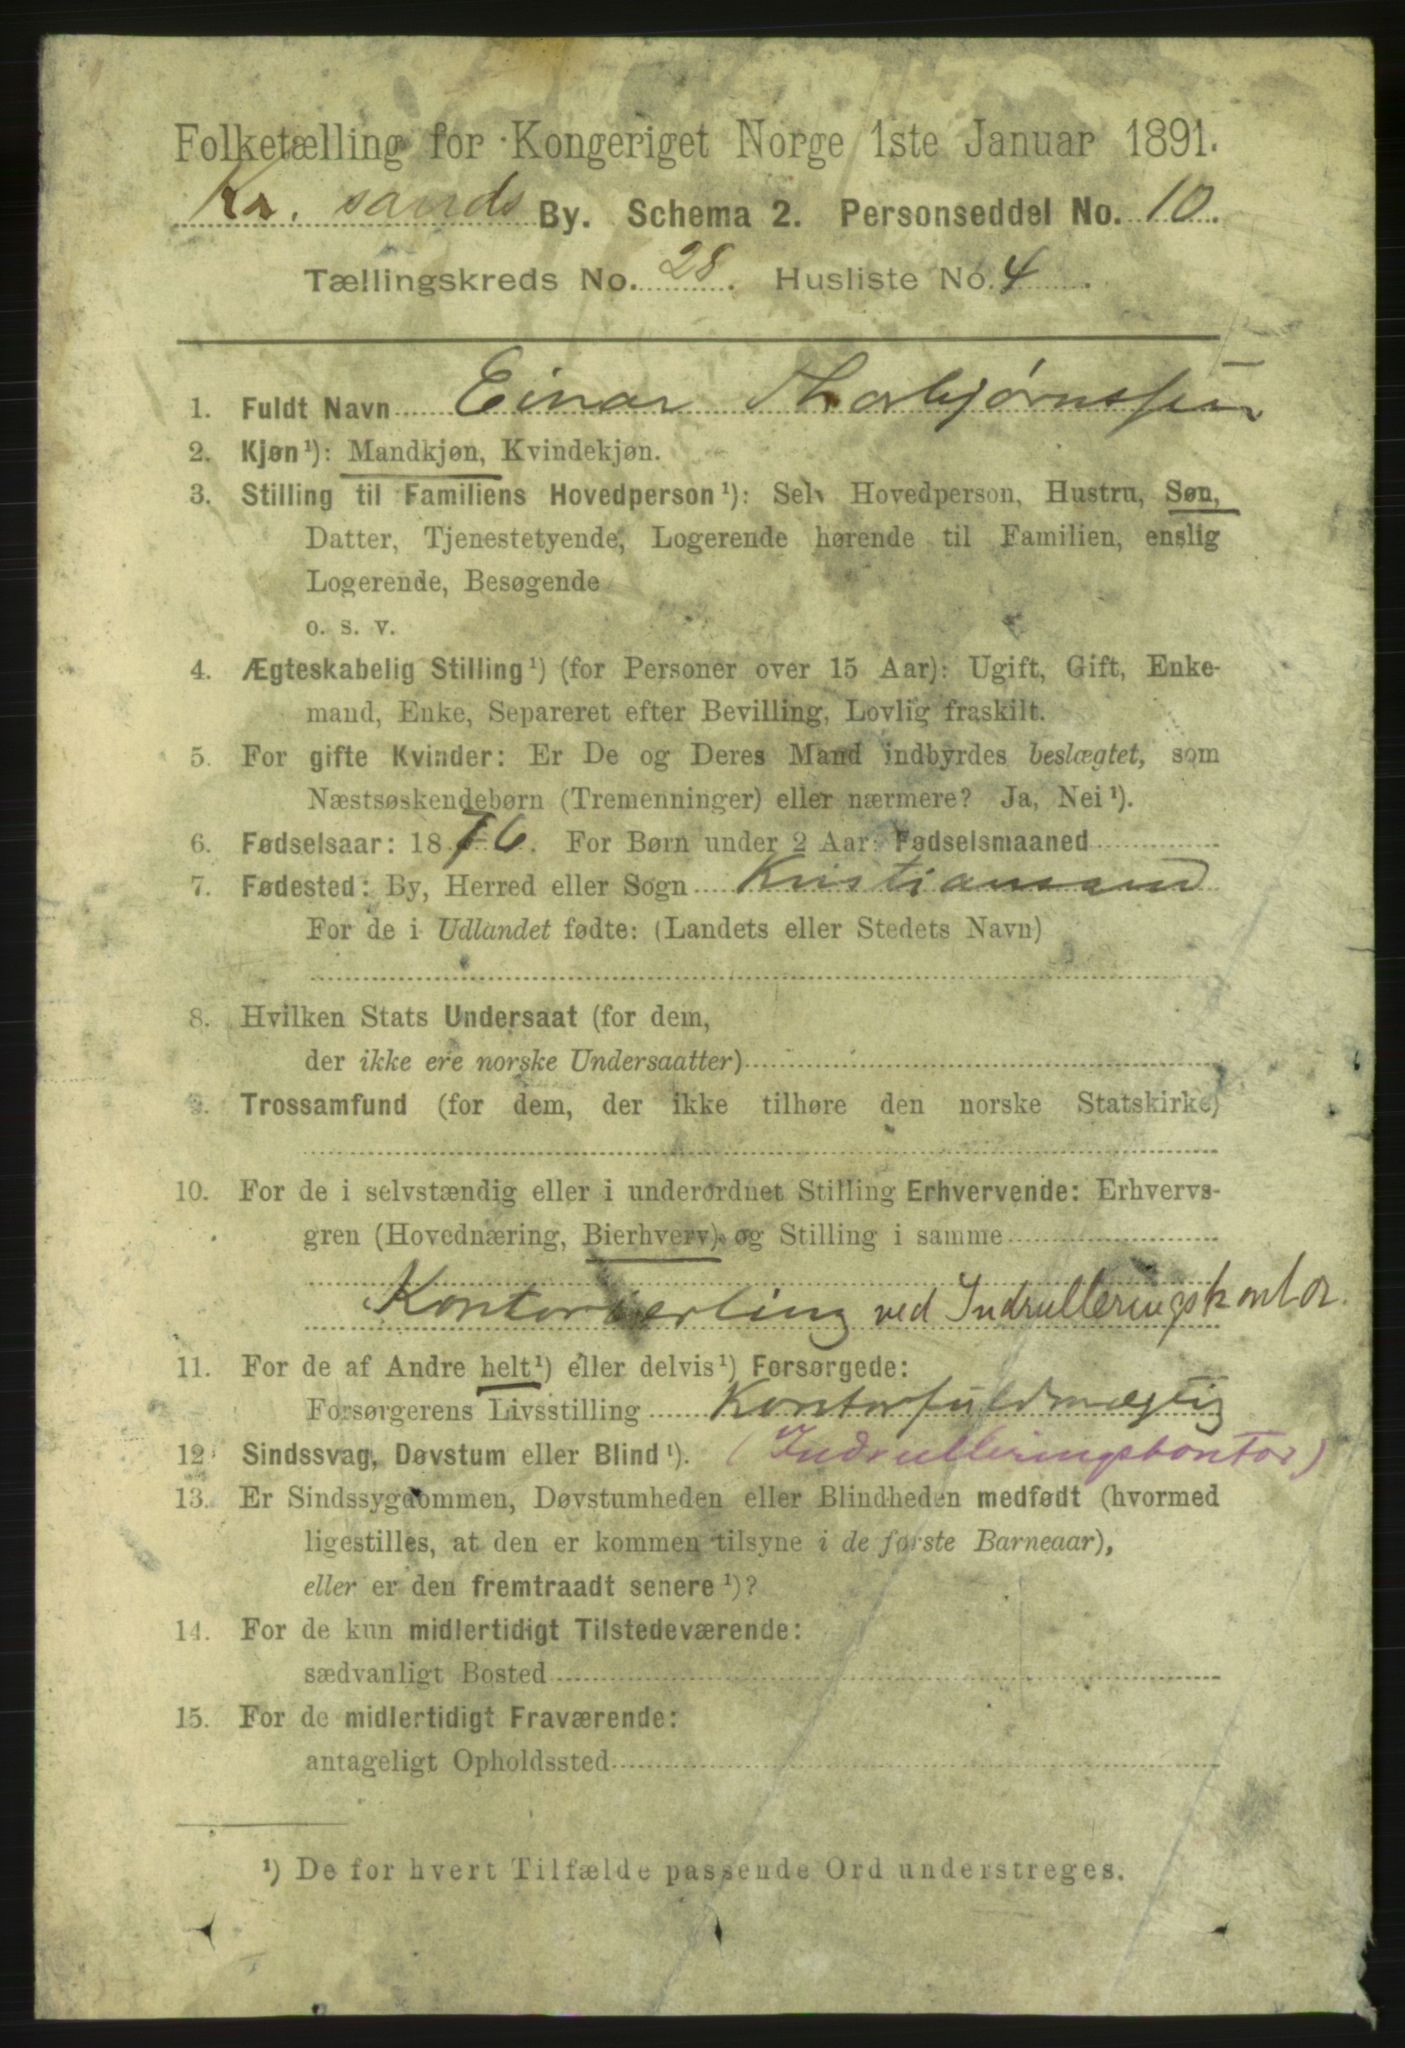 Folketælling for Kongeriget Norge 1ste Januar 1891.
Kr. sands By. Schema 2. Personseddel No. 10.
Tællingskreds No. 28. Husliste No. 4.
1. Fuldt Navn Einar Thorbjørnssen
2. Kjøn¹): Mandkjøn, Kvindekjøn.
3. Stilling til Familiens Hovedperson¹): Selv Hovedperson, Hustru, Søn,
Datter, Tjenestetyende, Logerende hørende til Familien, enslig
Logerende, Besøgende
o. s. v.
4. Ægteskabelig Stilling¹) (for Personer over 15 Aar): Ugift, Gift, Enke-
mand, Enke, Separeret efter Bevilling, Lovlig fraskilt.
5. For gifte Kvinder: Er De og Deres Mand indbyrdes beslægtet, som
Næstsøskendebørn (Tremenninger) eller nærmere? Ja, Nei¹).
6. Fødselsaar: 1876. For Børn under 2 Aar: Fødselsmaaned
7. Fødested: By, Herred eller Sogn Kristianssand
For de i Udlandet fødte: (Landets eller Stedets Navn)
8. Hvilken Stats Undersaat (for dem,
der ikke ere norske Undersaatter)
9. Trossamfund (for dem, der ikke tilhøre den norske Statskirke)
10. For de i selvstændig eller i underordnet Stilling Erhvervende: Erhvervs-
gren (Hovednæring, Bierhverv) og Stilling i samme
Kontorlærling ved Indrulleringskontor.
11. For de af Andre helt¹) eller delvis¹) Forsørgede:
Forsørgerens Livsstilling Kontorfuldmægtig
12. Sindssvag, Døvstum eller Blind¹). (Indrulleringskontor)
13. Er Sindssygdommen, Døvstumheden eller Blindheden medfødt (hvormed
ligestilles, at den er kommen tilsyne i de første Barneaar),
eller er den fremtraadt senere¹)?
14. For de kun midlertidigt Tilstedeværende:
sædvanligt Bosted
15. For de midlertidigt Fraværende:
antageligt Opholdssted
¹) De for hvert Tilfælde passende Ord understreges.